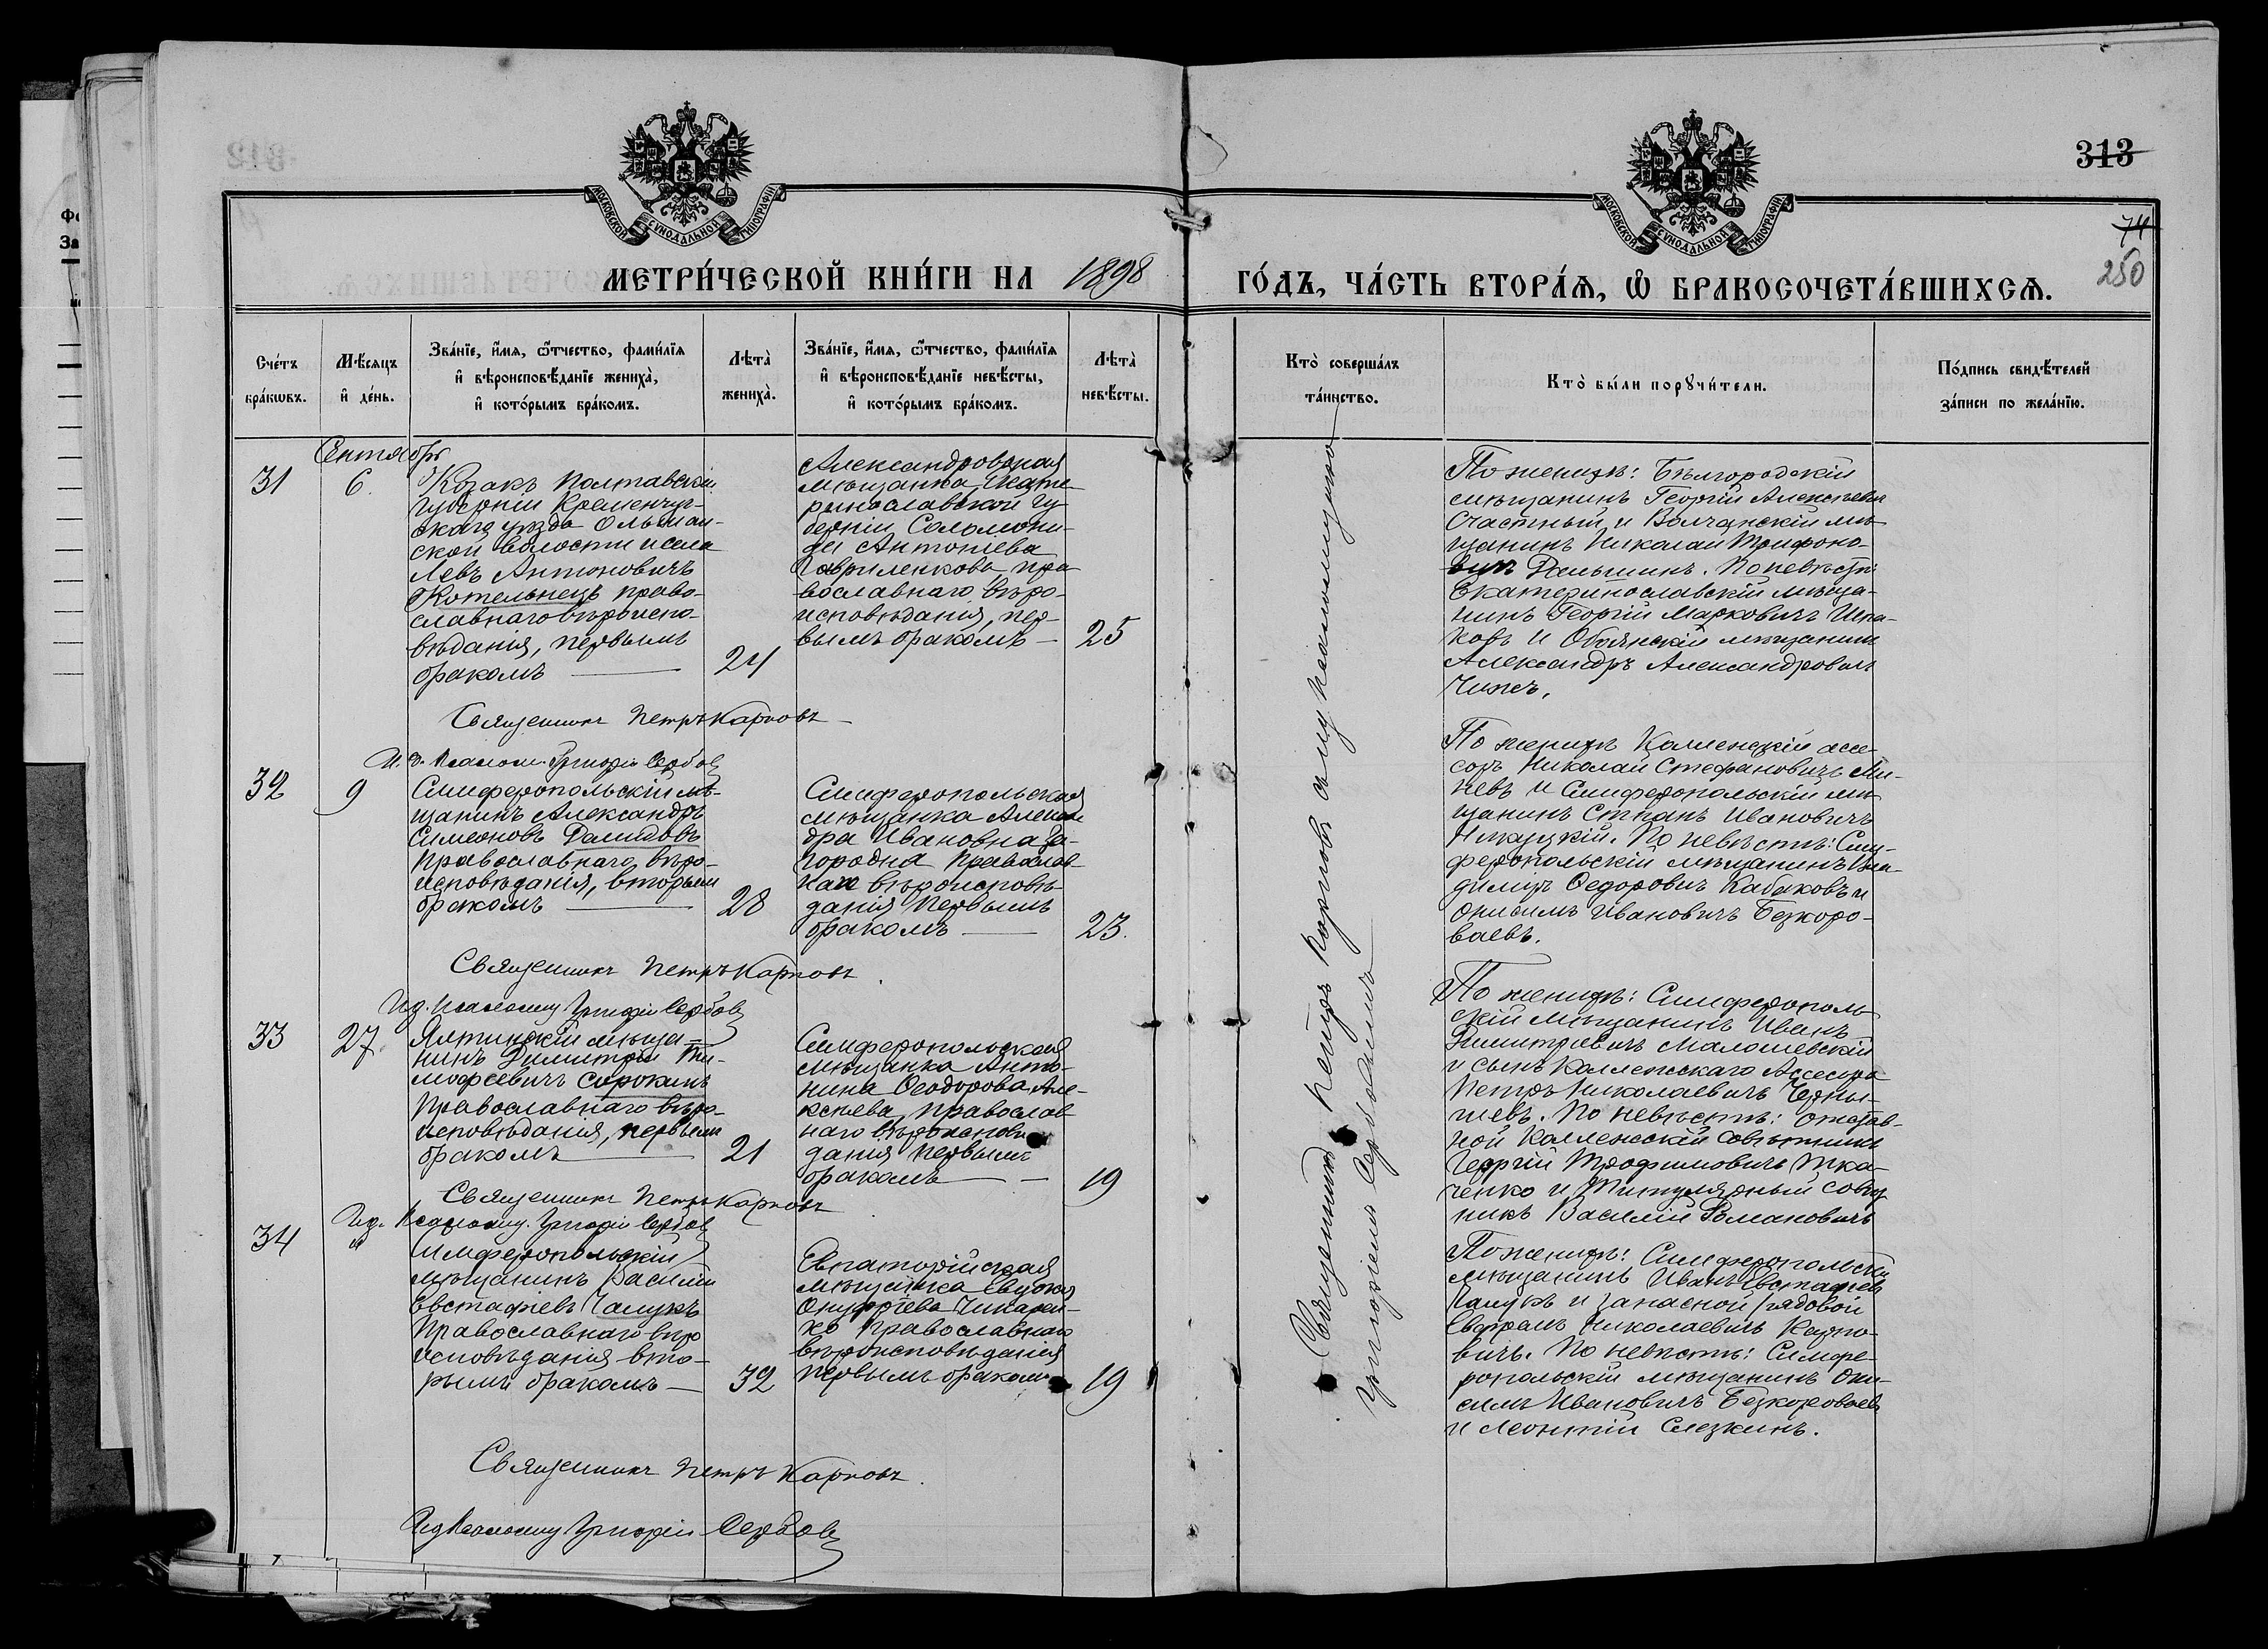 313
74
250
МОСКОВСКОЙ СѴНОДАЛЬНОЙ ТИПОГРАФІИ
МОСКОВСКОЙ СѴНОДАЛЬНОЙ ТИПОГРАФІИ
МЕТРИ́ЧЕСКОЙ КНИ́ГИ НА 1898 ГО́ДЪ, ЧА́СТЬ ВТОРА́Ѧ, Ѽ БРАКОСОЧЕТА́ВШИХСѦ.
Сче́тъ бра́кѡвъ.
Мѣ́сяцъ и҆ де́нь.
Зва́нїе, и҆́мя, ѻ҆́тчество, фами́лїя
и҆ вѣроисповѣ́данїе жениха̀,
и҆ кото́рымъ бра́комъ.
Лѣта̀ жениха̀.
Зва́нїе, и҆́мя, ѻ҆́тчество, фами́лїя
и҆ вѣроисповѣ́данїе невѣ́сты,
и҆ кото́рымъ бра́комъ.
Лѣта̀ невѣ́сты.
Кто̀ соверша́лъ та́инство.
Кто̀ бы́ли порꙋчи́тели.
По́дпись свидѣ́телей
за́писи по жела́нїю.
Сентябрь
31
6.
Козакъ Полтавской
губерніи Кременчуг-
скаго уѣзда
ской волости и села
Левъ Антоновичъ
Котельнецъ право-
славнаго вѣроиспо-
вѣданія, первымъ
бракомъ
24
Александровская
мѣщанка Екате
ринославской гу
берніи Соломони-
да Антоніева
Гавриленкова, пра
вославнаго вѣро-
исповѣданія, пер-
вымъ бракомъ
25
По женихѣ: Бѣлгородскій
мѣщанинъ Георгій Алексѣевъ
Счастный и Волчанскій мѣ
щанинъ Николай Трифоно-
вичъ. По невѣстѣ:
Екатеринославскій мѣща-
нинъ Георгій Марковичъ
ковъ и Обоянскій мѣщанинъ
Александръ Александровичъ
Чижъ.
Священникъ Петръ Карповъ
И. д. Псаломщ. Григорій Сербовъ
32
9
Симферопольскій мѣ-
щанинъ Александръ
Симеоновъ
православнаго вѣро-
исповѣданія, вторымъ
бракомъ
28
Симферопольская
мѣщанка Алексан
дра Ивановна За-
городна православ
наго вѣроисповѣ-
данія первымъ
бракомъ
23.
По женихѣ Коллежскій ассе-
соръ Николай Стефановичъ Ми-
невъ и Симферопольскій мѣ
щанинъ Степанъ Ивановичъ
По невѣстѣ: Сим-
феропольскій мѣщанинъ Вла-
диміръ Ѳедоровичъ Кабаковъ и
Онисимъ Ивановичъ Безкоро-
ваевъ.
Священникъ Петръ Карповъ.
И.д. Псаломщ Григорій Сербовъ
33
27.
Ялтинскій мѣща-
нинъ Димитрій Ти-
моѳеевичъ Сорокинъ
Православнаго вѣро-
исповѣданія, первымъ
бракомъ
21
Симферопольская
мѣщанка Анто-
нина Ѳеодорова Але-
ксѣева, православ
наго вѣроисповѣ
данія первымъ
бракомъ
19
По женихѣ: Симферополь
скій мѣщанинъ Иванъ
Димитріевичъ Малошевскій
и сынъ Коллежскаго Ассесора
Петръ Николаевичъ Черны-
шевъ. По невѣстѣ: отстав-
ной Коллежскій совѣтникъ
Георгій Трофимовичъ Тка-
ченко и Титулярный совѣт
никъ Василій Романовичъ
Священникъ Петръ Карповъ.
И.д. Псаломщ. Григорій Сербовъ
34
"
Симферопольскій
мѣщанинъ Василій
Евстафіевъ Чалукъ
Православнаго вѣро
исповѣданія вто-
рымъ бракомъ
32
Евпаторійская
мѣщанка Евдокія
Онуфріева
ко православнаго
вѣроисповѣданія
первымъ бракомъ
19
По женихѣ: Симферопольскій
мѣщанинъ Иванъ Евстафіевъ
Чалукъ и запасной рядовой
Николаевичъ Карпо-
вичъ. По невѣстѣ: Симфе-
ропольскій мѣщанинъ Они-
симъ Ивановичъ Безкороваевъ
и Леонтій Слезкинъ.
Священникъ Петръ Карповъ.
И.д. Псаломщ Григорій Сербовъ
Священникъ Петръ Карповъ съ и.д. псаломщика
Григоріемъ Сербовымъ